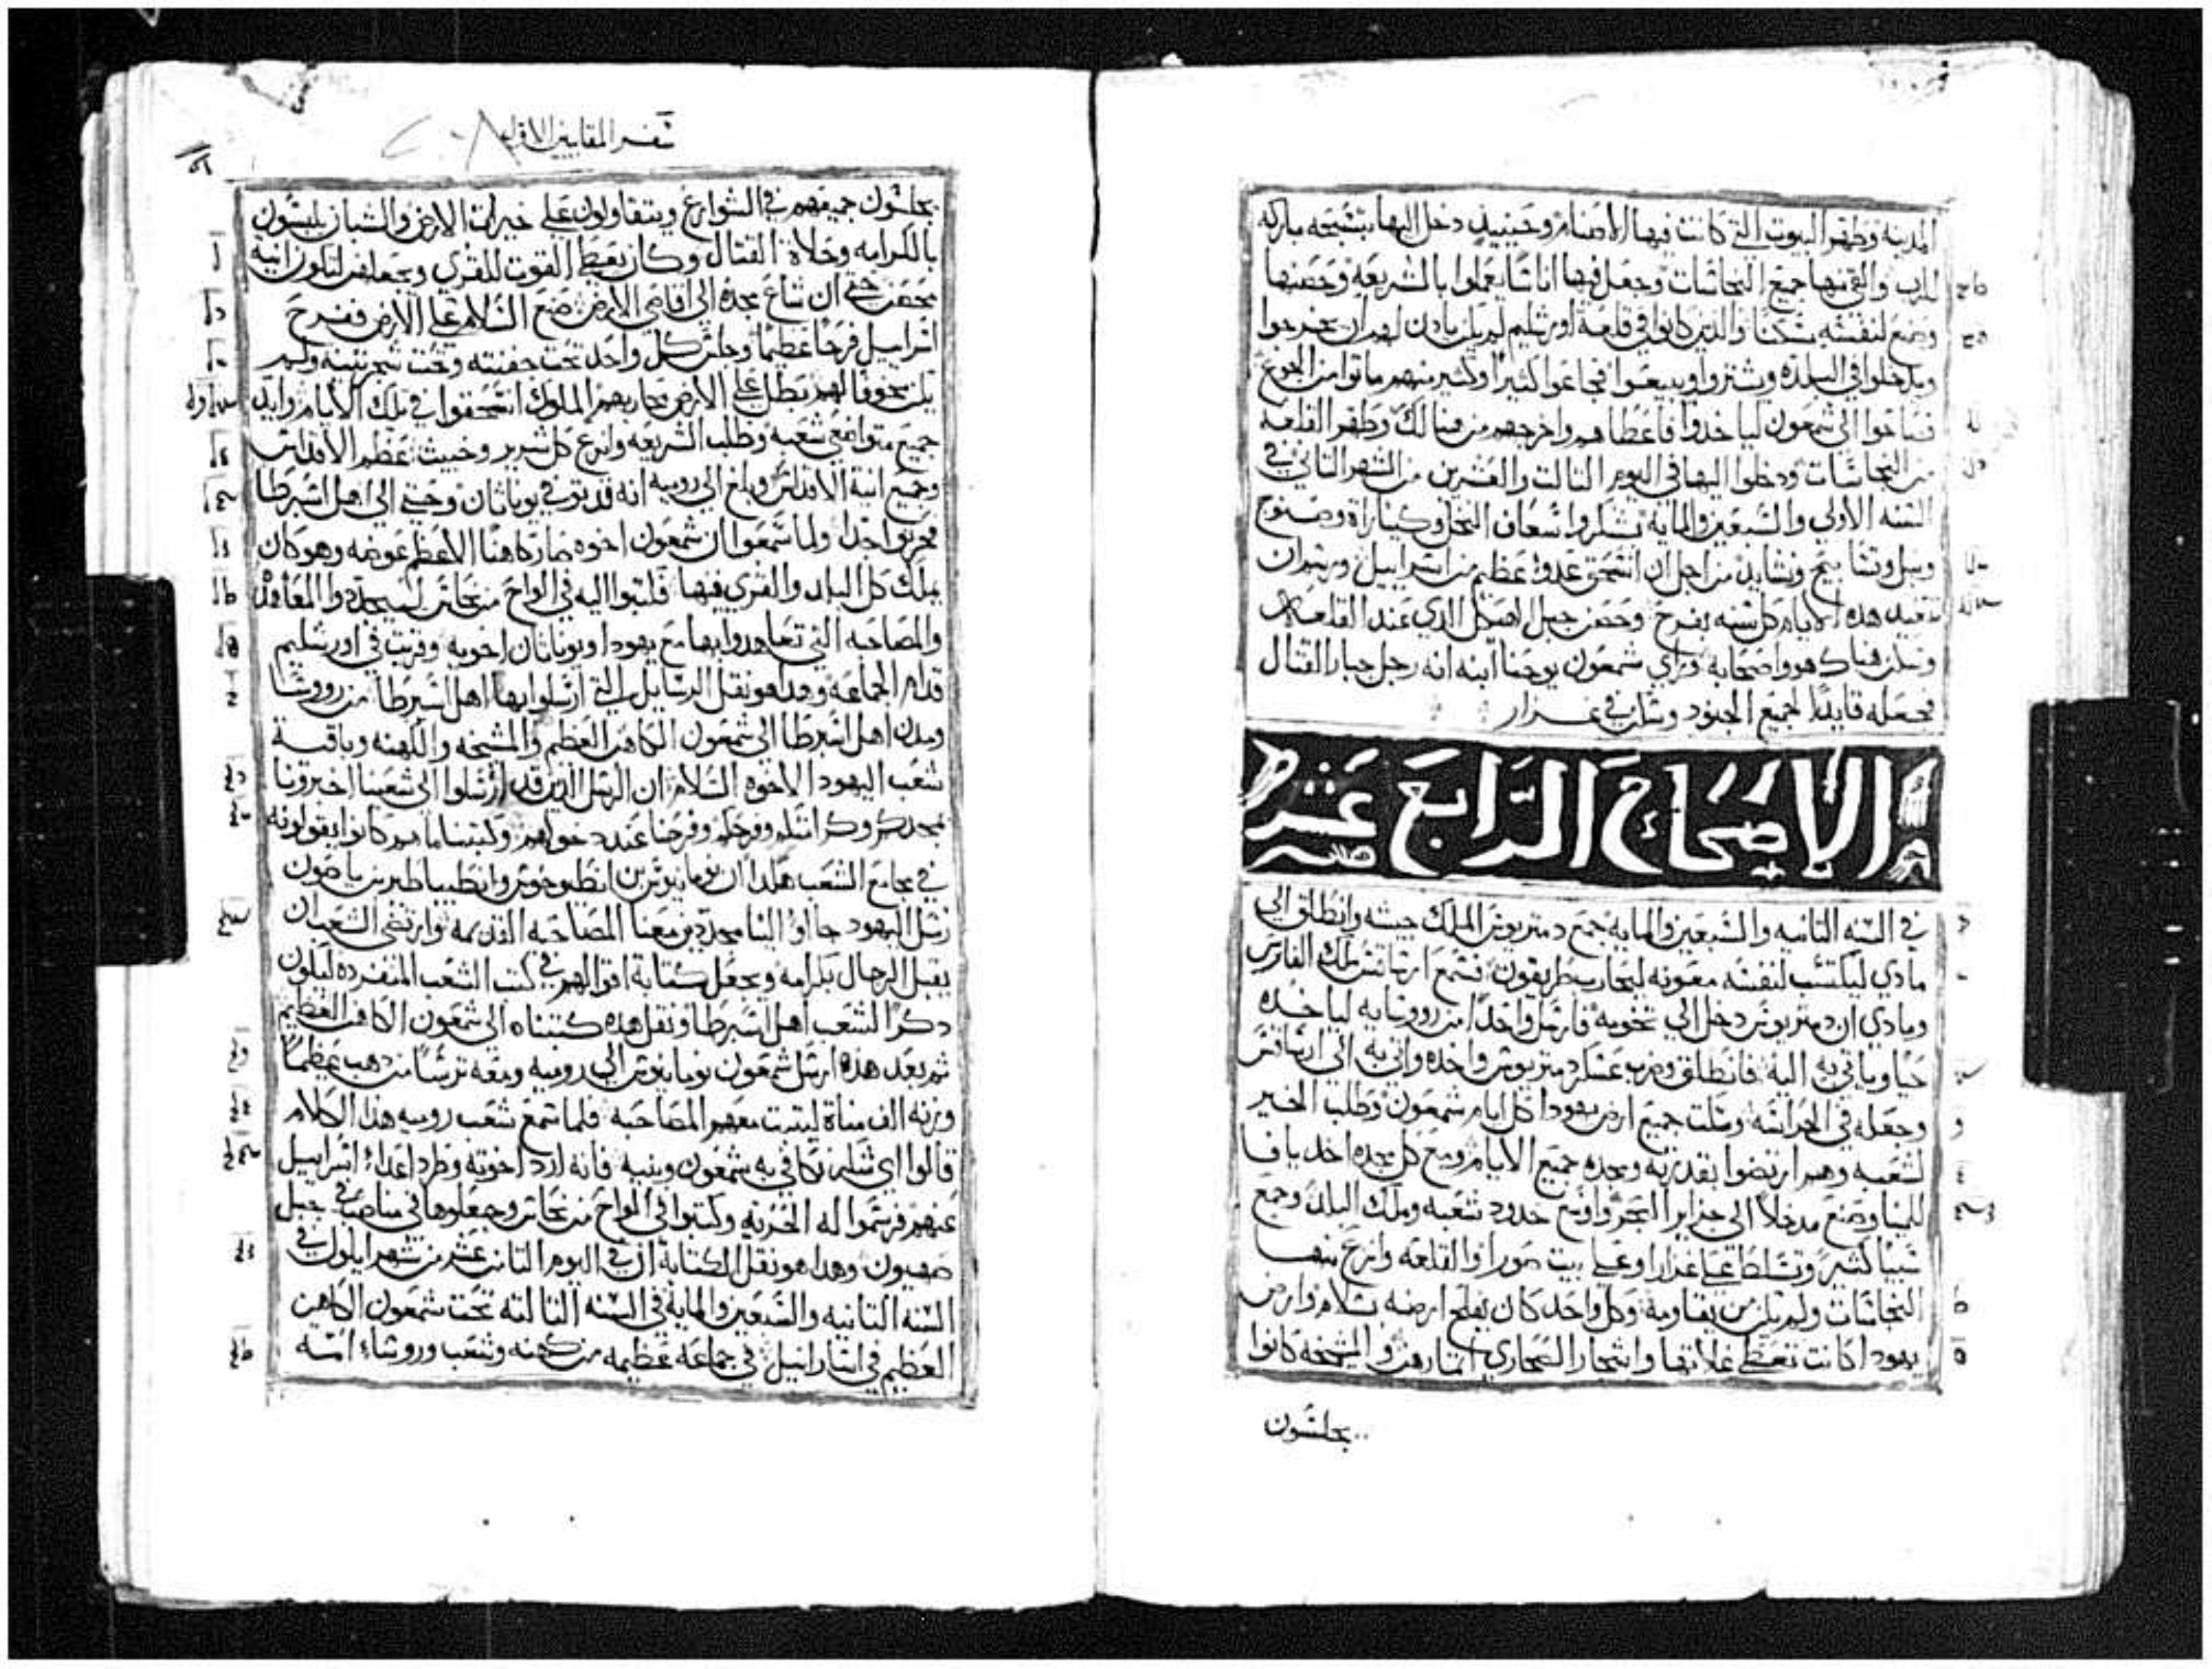 المدينه وطهر البيوت التي كانت فيها الاصنام وحينيد دخل اليها بتسبحه مباركه
للرب والقي منها جميع النجاسات وجعل فيها اناسا يعملوا بالشريعه وحصنها
وصنع لنفسه سكنا والدين كانوا في قلعة اورشليم لم يكن يادن لهم ان يخرجوا
ويدخلوا في البلده ويشتروا ويبيعوا فجاعوا كثيرا وكثير منهم ماتوا من الجوع
فصاحوا الي شمعون لياخدوا فاعطاهم واخرجهم من هنالك وطهر القلعه
من النجاسات ودخلوا اليها في اليوم التالت والعشرين من الشهر التاني في
السنه الاولي والسبعين والمايه بشكر واسعاف النخل وكيناراة وصنوج
ونبل وتسابيح ونشايد من اجل ان انسحق عدو عظيم من اسراييل ورسم ان
تعيد هده الايام كل سنه بفرح وحصن جبل الهيكل الدي عند القلعه
وسكن هناك هو واصحابه وراي شمعون يوحنا ابنه انه رجل جبار القتال
فجعله قايدا لجميع الجنود وسكن في غزار
الاصحاح الرابع عشر
في السنه التانيه والسبعين والمايه جمع دمتريوس الملك جيشه وانطلق الي
مادي ليكتسب لنفسه معونه ليحارب طريفون فسمع ارساتس ملك الفارس
ومادي ان دمتريوس دخل الي تخومه فارسل واحدا من روسايه لياخده
حيا وياتي به اليه فانطلق وضرب عسكر دمتريوس واخده واتي به الي ارساتس
وجعله في الحراسه وسكت جميع ارض يهودا كل ايام شمعون وطلب الخير
لشعبه وهم ارتضوا بقدرته ومجده جميع الايام ومع كل مجده اخد يافا
للمينا وصنع مدخلا الي جزاير البحر واوسع حدود شعبه وملك البلد وجمع
سبيا كثير وتسلط علي غزارا وعلي بيت صورا والقلعه وانزع منها
النجاسات ولم يكن من يقاومه وكل واحد كان يفلح ارضه بسلام وارض
يهودا كانت تعطي غلاتها واشجار الصحاري اتمارهن والشيخه كانوا
يجلسون
سفر المقابيين الاول
يجلسون جميعهم في الشوارع ويتفاولون علي خيرات الارض والشبان يلبسون
بالكرامه وحلاة القتال وكان يعطي القوت للقري ويجعلهن لتكون انية
بحصن حتي ان شاع مجده الي اقاصي الارض صنع السلام علي الارض ففرح
اسراييل فرحا عظيما وجلس كل واحد تحت جفنته وتحت شجر تينه ولم
يكن يخوفا لهم بطل علي الارض محاربهم الملوك انسحقوا في تلك الايام وايد
جميع متواضعي شعبه وطلب الشريعه وانزع كل شرير وخبيث عظم الاقداس
وجميع انية الاقداس وبلغ الي روميه انه قد توفي يوناتان وحتي الي اهل اسبرطا
فحزنوا جدا ولما سمعوا ان شمعون اخوه صار كاهنا الاعظم عوضه وهو كان
يملك كل البلد والقري فيها فكتبوا اليه في الواح من نحاس ليجددوا المعاهده
والمصاحبه التي تعاهدوا بها مع يهودا ويوناتان اخويه وقريت في اورشليم
قدام الجماعه وهدا هو نقل الرسايل التي ارسلوا بها اهل اسبرطا من رووسا
ومدن اهل اسبرطا الي شمعون الكاهن العظيم والمشيخه والكهنه وباقية
شعب اليهود الاخوه السلام ان الرسل الدين قد ارسلوا الي شعبنا اخبرونا
بمجدكم وكرامتكم وفرحكم وفرحنا عند دخولهم وكتبنا ما هم كانوا يقولونه
في مجامع الشعب هكدا ان نومانيوس بن انطيوخوس وانطيباطير بن ياصون
رسل اليهود جااوا الينا مجددين معنا المصاحبه القديمه وارتضي الشعب ان
يقبل الرجال بكرامه ويجعل كتابة اقوالهم في كتب الشعب المنفرده ليكون
دكرا لشعب اهل اسبرطا ونقل هده كتبناه الي شمعون الكاهن العظيم
تم بعد هده ارسل شمعون نومانيوس الي روميه ومعه ترسا من دهب عظيما
وزنه الف مناة ليتبت معهم المصاحبه فلما سمع شعب روميه هذا الكلام
قالوا اي شكر نكافي به شمعون وبنيه فانه ارد اخوته وطرد اعداء اسراييل
عنهم فرسموا له الحريه وكتبوا في الواح من نحاس وجعلوها في مناصب في جبل
صهيون وهدا هو نقل الكتابة ان في اليوم التامن عشر من شهر ايلول في
السنه التانيه والسبعين والمايه في السنه التالته تحت شمعون الكاهن
العظيم في اساراميل في جماعة عظيمه من كهنه وشعب وروساء امته